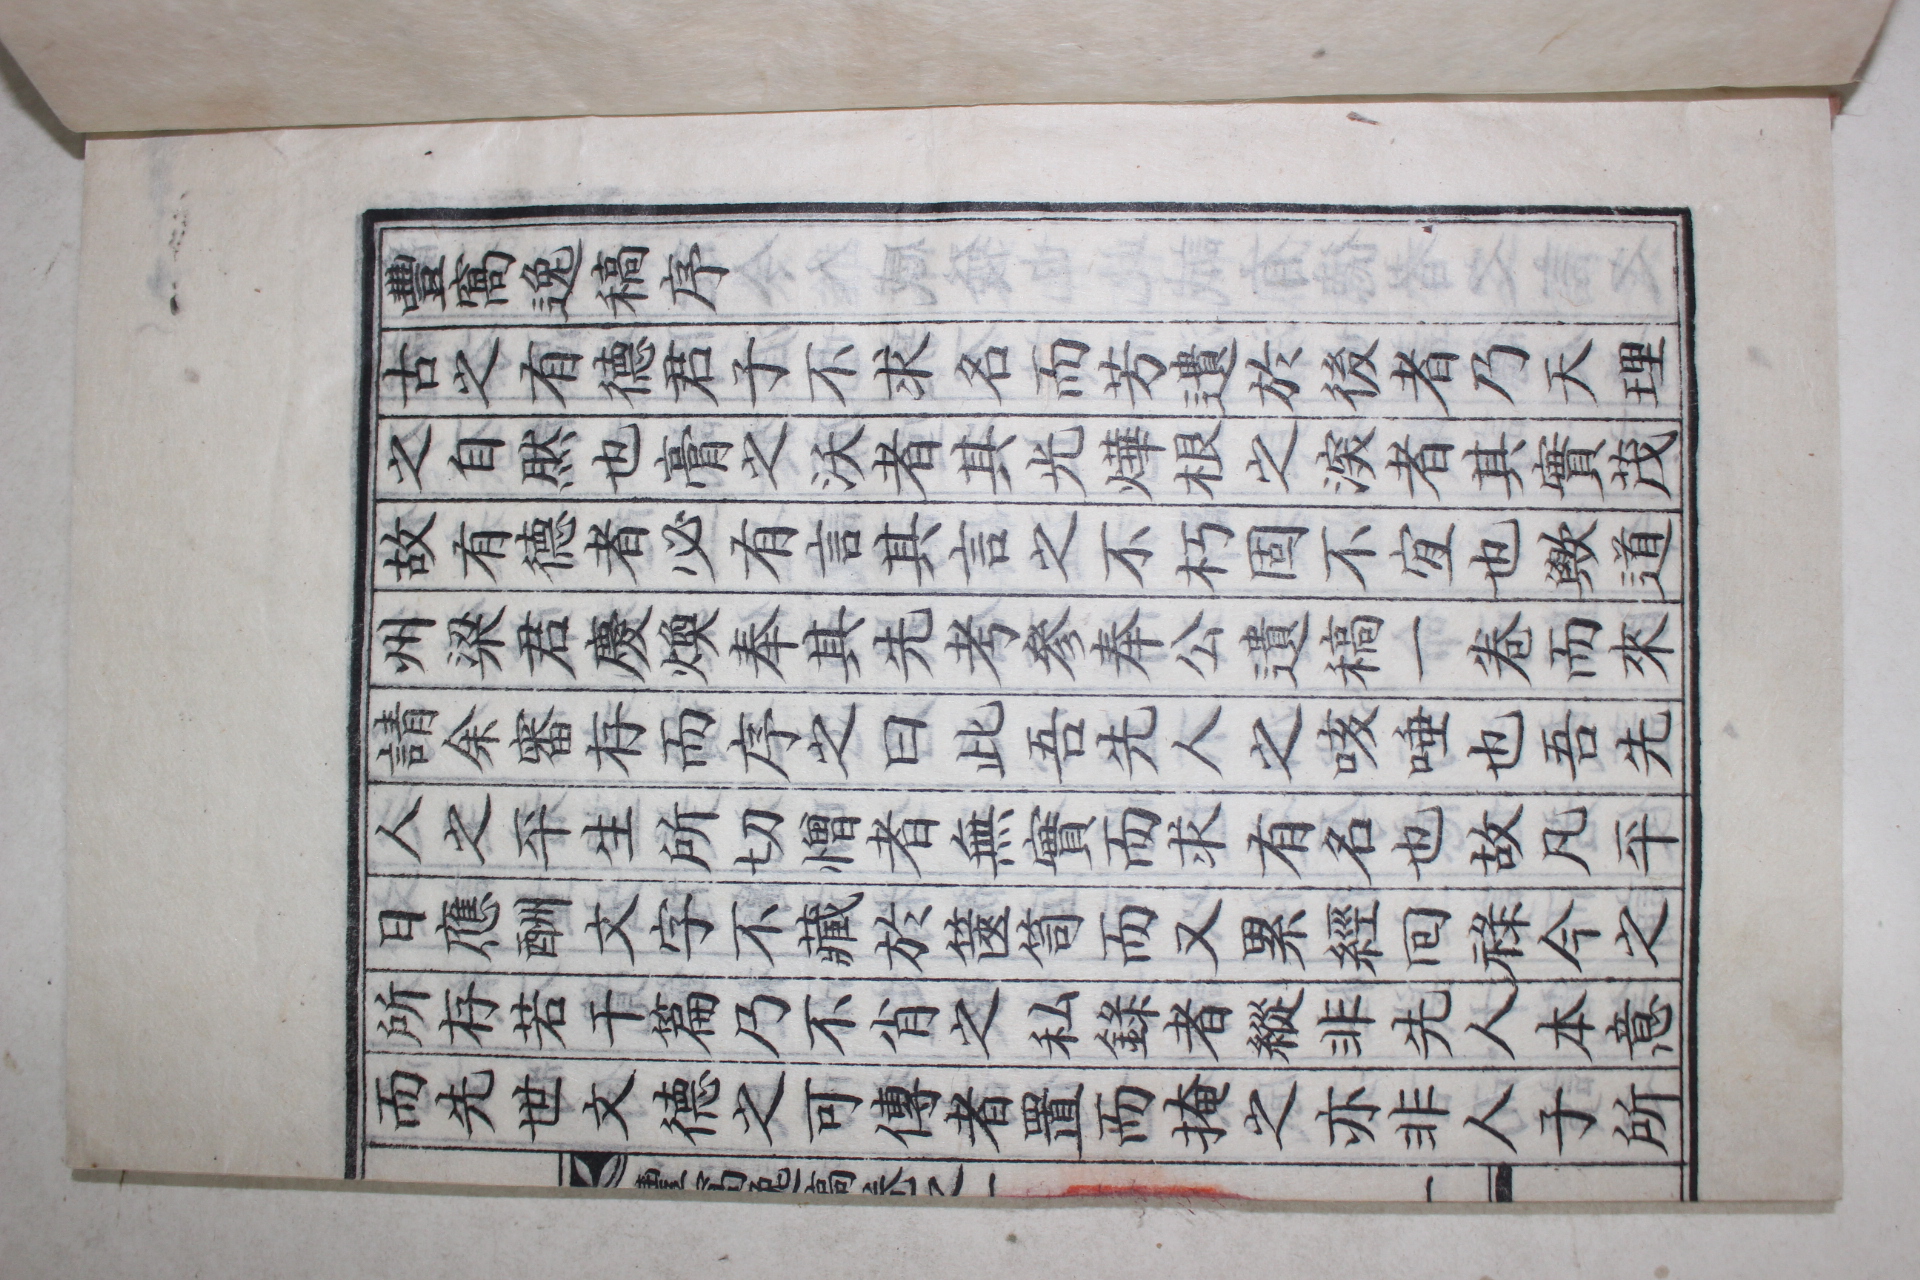 豐窩逸稿序
古之有德君子不求名而芳遺於後者乃天理
之自然也膏之沃者其光燁根之深者其實茂
故有德者必有言其言之不朽固不宜也歟道
州梁君慶煥奉其先考參奉公遺稿一卷而來
請余審存而序之曰此吾先人之咳唾也吾先
人之平生所切憎者無實而求有名也故凡平
日應酬文字不藏於篋笥而又累經回祿今之
所存若干篇乃不肖之私錄者縱非先人本意
而先世文德之可傳者置而掩之亦非人子所
豐窩逸稿卷之一 一